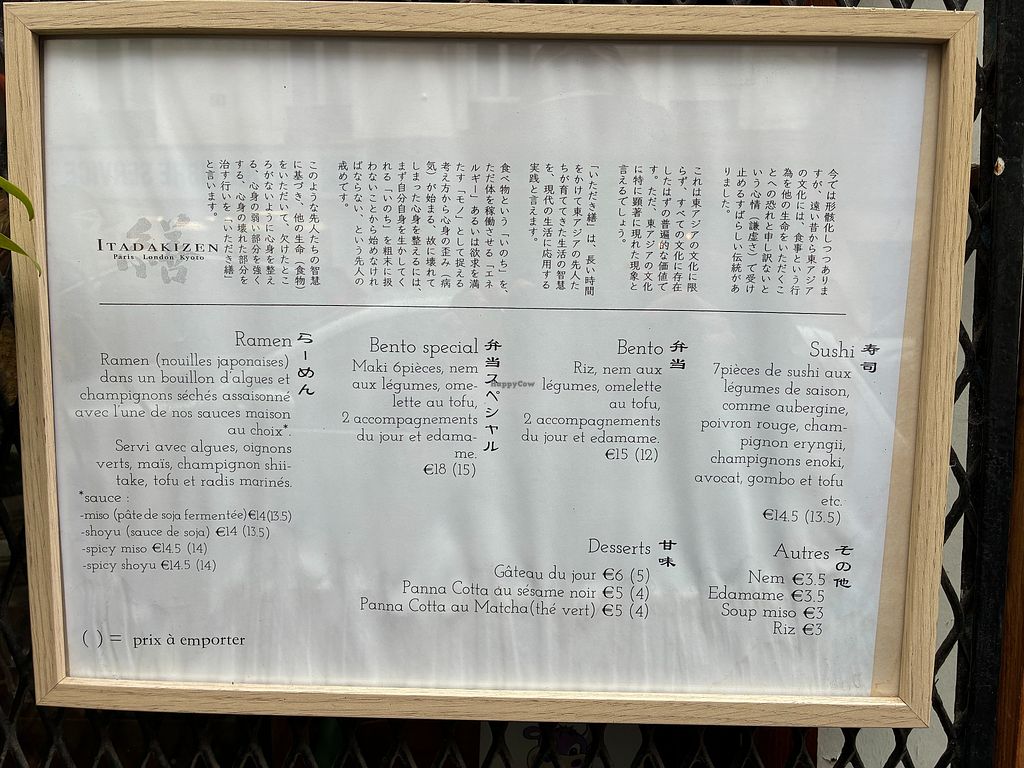 今では形骸化しつつありま
すが、遠い昔から東アジア
の文化には、食事という行
為を他の生命をいただくこ
とへの恐れと申し訳ないと
いう心情（謙虚さ）で受け
止めるすばらしい伝統があ
りました。
これは東アジアの文化に限
らず、すべての文化に存在
したはずの普遍的な価値で
す。ただ、東アジアの文化
に特に顕著に現れた現象と
言えるでしょう。
「いただき繕」は、長い時間
をかけて東アジアの先人た
ちが育ててきた生活の智慧
を、現代の生活に応用する
実践と言えます。
食べ物という「いのち」を、
ただ体を稼働させる「エネ
ルギー」あるいは欲求を満
たす「モノ」として捉える
考え方から心身の歪み（病
気）が始まる、故に壊れて
しまった心身を整えるには、
まず自分自身を生かしてく
れる「いのち」を粗末に扱
わないことから始めなけれ
ばならない、という先人の
戒めです。
このような先人たちの智慧
に基づき、他の生命（食物）
をいただいて、欠けたとこ
ろがないように心身を整え
る、心身の弱い部分を強く
する、心身の壊れた部分を
治す行いを「いただき繕」
と言います。
繕
ITADAKIZEN
Paris London Kyoto
寿司
Sushi
7pièces de sushi aux
légumes de saison,
comme aubergine,
poivron rouge, cham-
pignon eryngii,
champignons enoki,
avocat, gombo et tofu
etc.
€14.5 (13.5)
弁当
Bento
Riz, nem aux
légumes, omelette
au tofu,
2 accompagnements
du jour et edamame.
€15 (12)
弁当スペシャル
Bento special
Maki 6pièces, nem
aux légumes, ome-
lette au tofu,
2 accompagnements
du jour et edama-
me.
€18 (15)
らーめん
Ramen
Ramen (nouilles japonaises)
dans un bouillon d'algues et
champignons séchés assaisonné
avec l'une de nos sauces maison
au choix*.
Servi avec algues, oignons
verts, maïs, champignon shii-
take, tofu et radis marinés.
*sauce :
-miso (pâte de soja fermentée)€14(13.5)
-shoyu (sauce de soja) €14 (13.5)
-spicy miso €14.5 (14)
-spicy shoyu €14.5 (14)
その他
Autres
Nem €3.5
Edamame €3.5
Soup miso €3
Riz €3
甘味
Desserts
Gâteau du jour €6 (5)
Panna Cotta au sésame noir €5 (4)
Panna Cotta au Matcha(thé vert) €5 (4)
( ) = prix à emporter
HappyCow